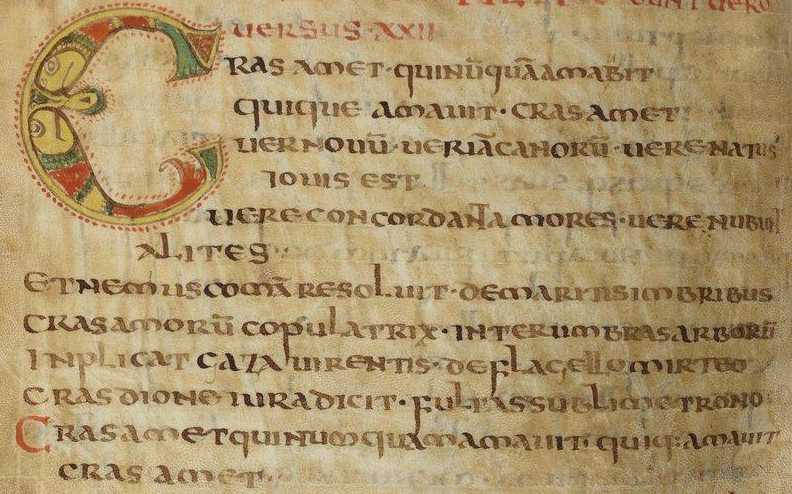 SUNT UERO
UERSUS·XXII
CRAS AMET·quiNūquāAMABIT
quique AMAUIT·CRAS AMET
UER NOUŪ UERIĀ CANORŪ·UERE NATUS
IOUIS EST
UERE CONCORDANT AMORES·UERE NUBUNT
ALITES
ET NEMUS COMĀ RESOLUIT·DE MARITIS IMBRIBUS
CRAS AMORŪ COPULATRIX·INTER UMBRAS ARBORŪ
INPLICAT CAZA UIRENTIS·DE FLAGELLO MIRTEO
CRAS DIONE IURA DICIT·FULTA SSUBLIME TRONO
CRAS AMET quiNUM quAM AMAUIT·quiq:AMAUIT
CRAS AMET·